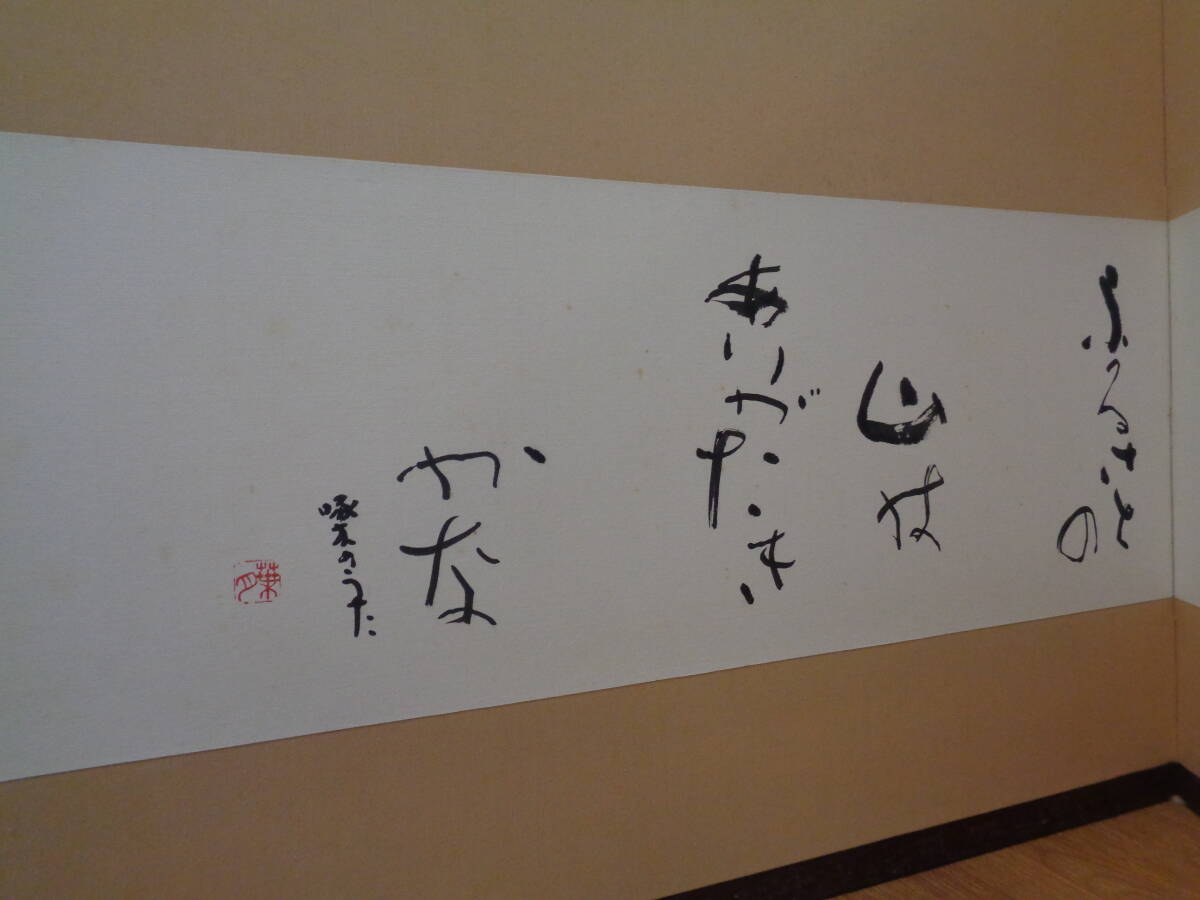 ふるさとの
山は
ありがたき
かな
啄木のうた